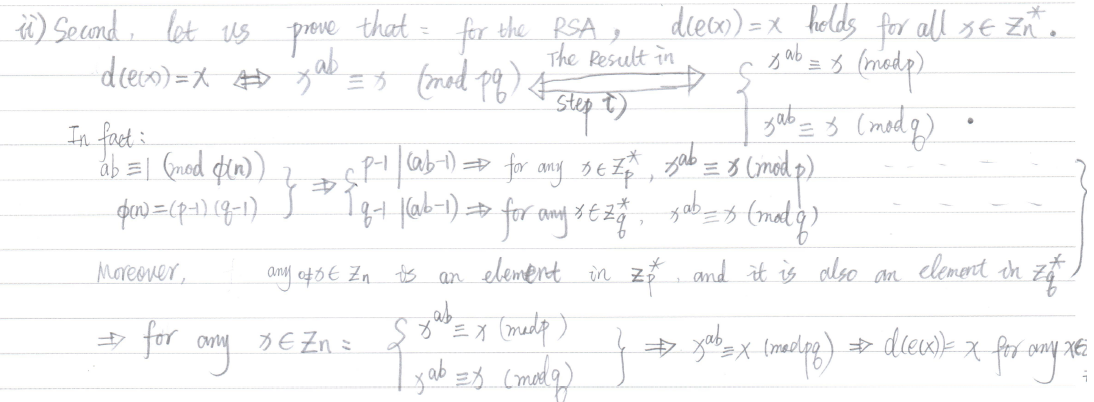 ii) Second, let us prove that: for the RSA, d(e(x)) = x holds for all x ∈ Zn*.
d(e(x)) = x ⇔ x^ab ≡ x (mod pq) ⟺ The Result in step i) { x^ab ≡ x (mod p)
x^ab ≡ x (mod q) .
In fact:
ab ≡ 1 (mod φ(n)) } ⇒ { p-1 | (ab-1) ⇒ for any x ∈ Zp*, x^ab ≡ x (mod p) - - - -
φ(n) = (p-1)(q-1) q-1 | (ab-1) ⇒ for any x ∈ Zq*, x^ab ≡ x (mod q) - - - - }
Moreover, any x ∈ Zn is an element in Zp*, and it is also an element in Zq*
⇒ for any x ∈ Zn: { x^ab ≡ x (mod p) } ⇒ x^ab ≡ x (mod pq) ⇒ d(e(x)) = x for any x ∈
x^ab ≡ x (mod q)